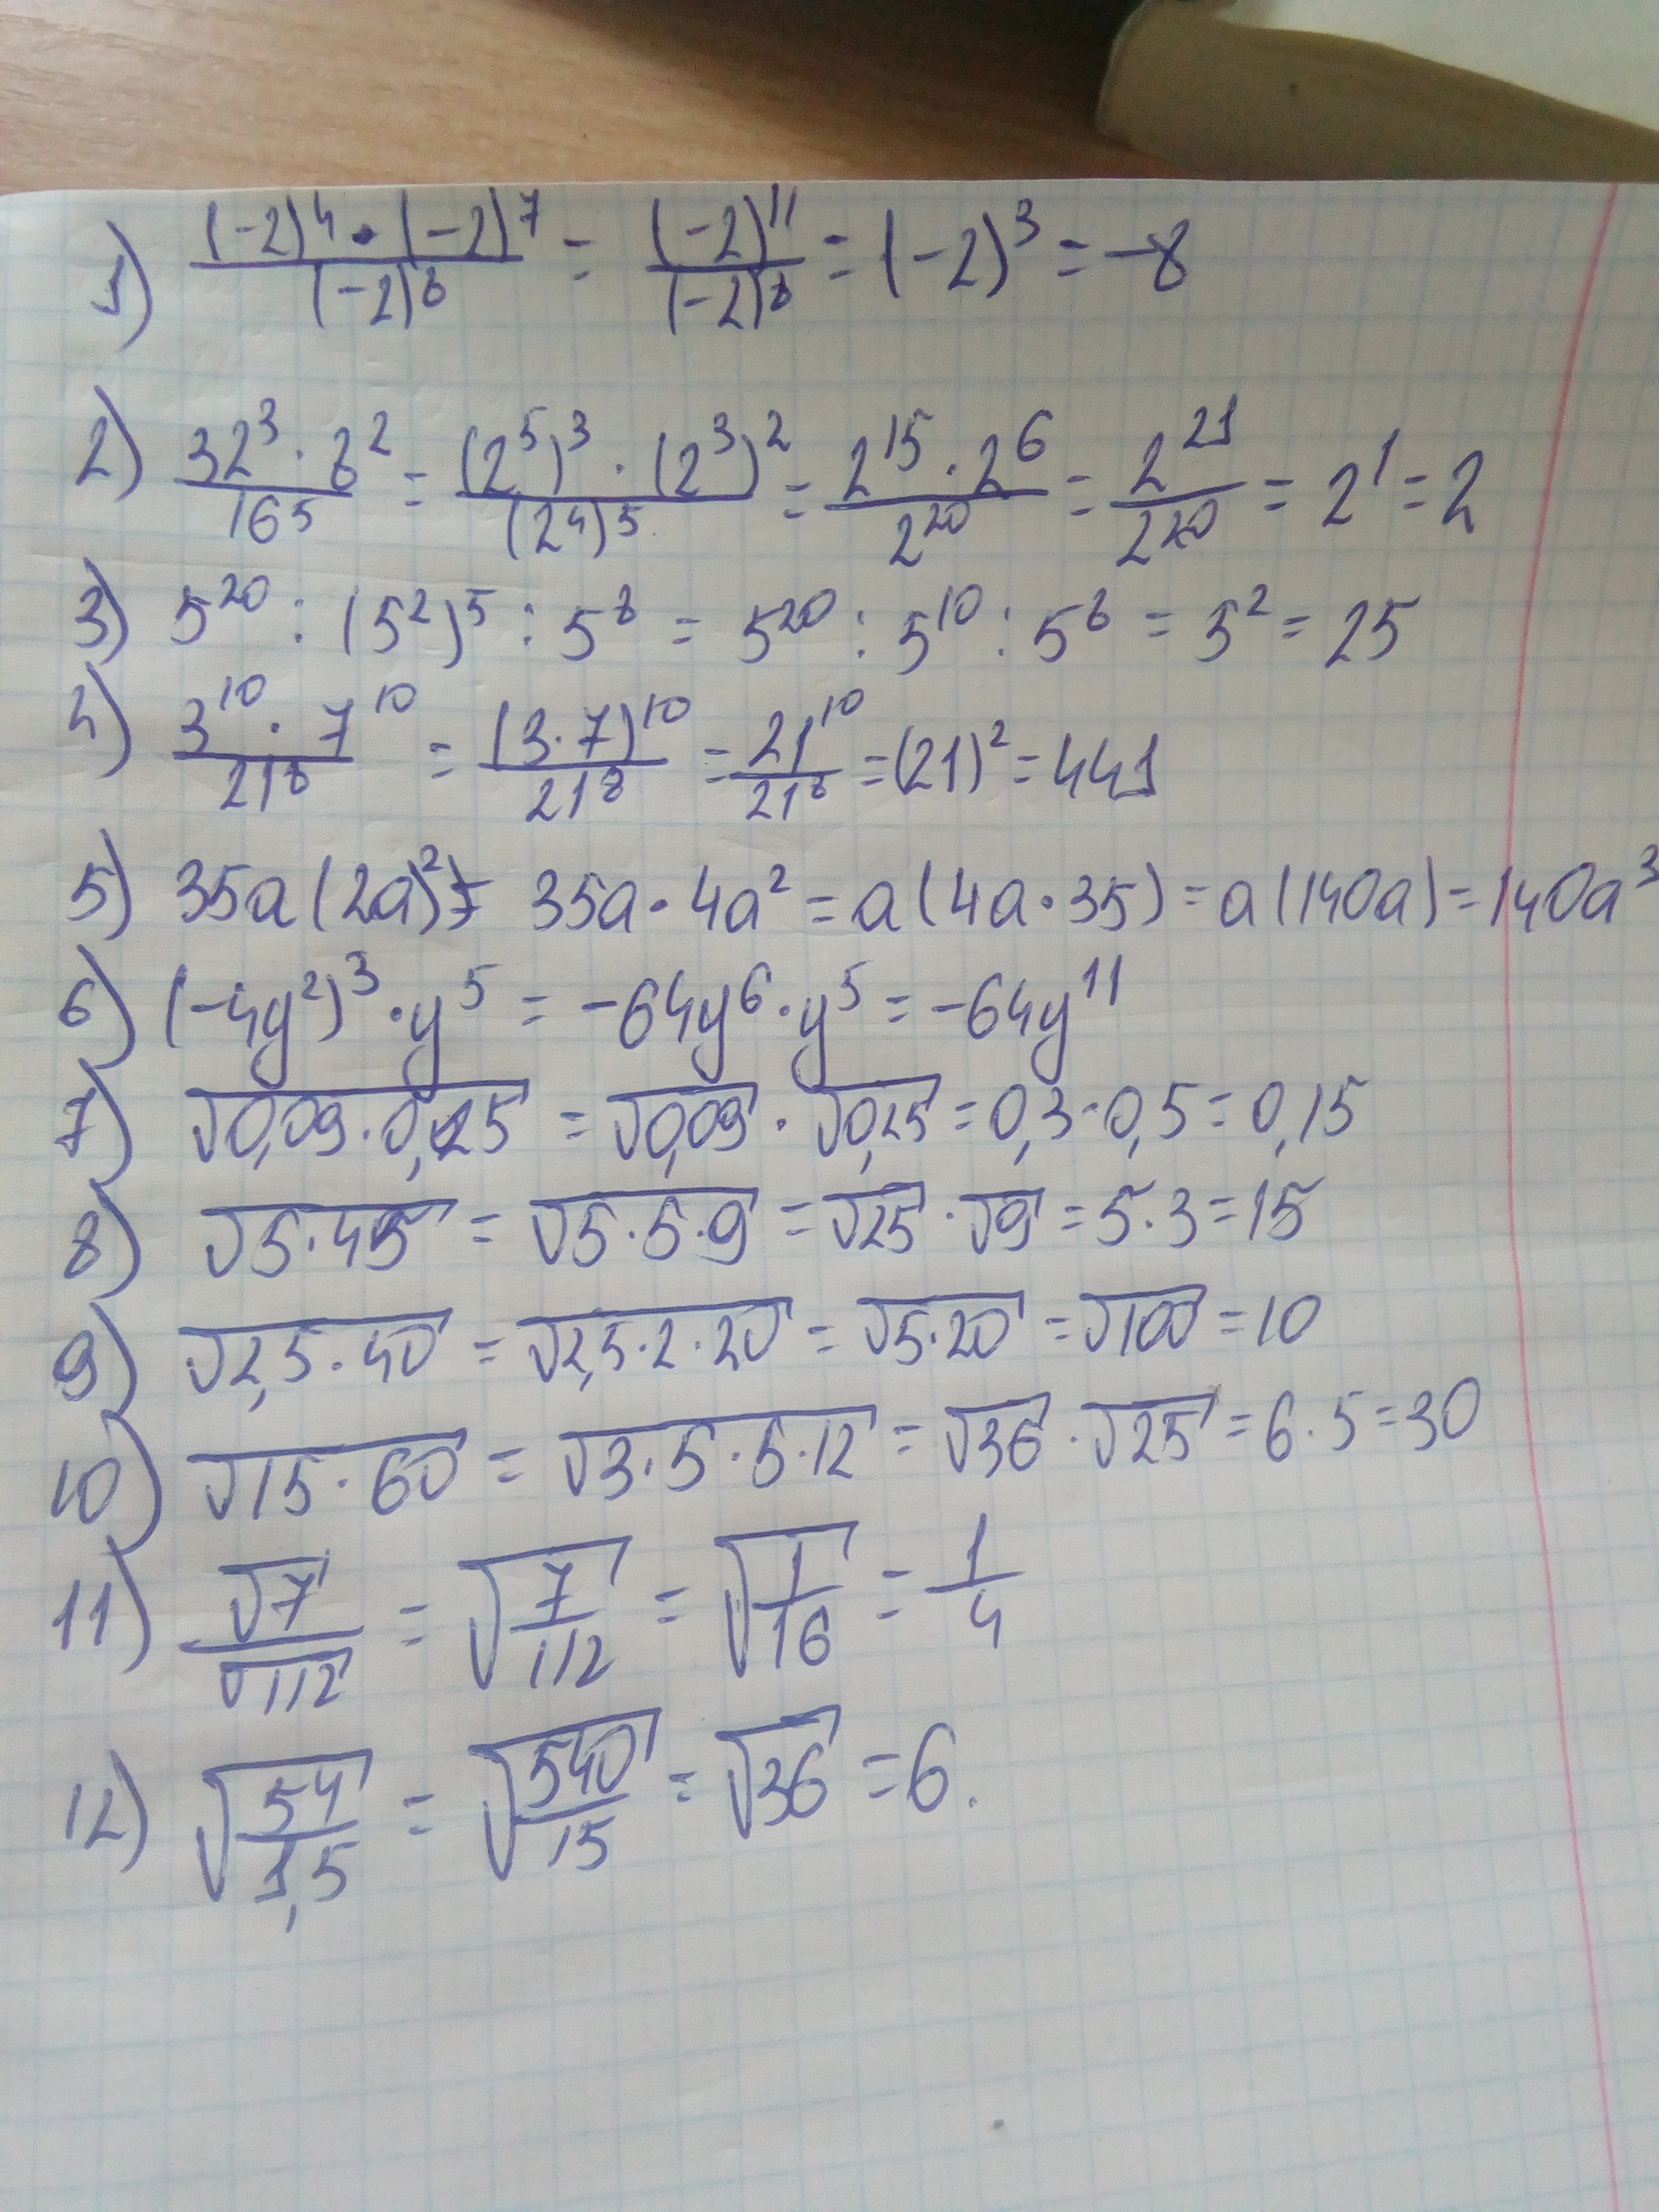 1) ((-2)⁴ · (-2)⁷)/(-2)⁸ = (-2)¹¹/(-2)⁸ = (-2)³ = -8
2) (32³ · 8²)/16⁵ = ((2⁵)³ · (2³)²)/(2⁴)⁵ = (2¹⁵ · 2⁶)/2²⁰ = 2²¹/2²⁰ = 2¹ = 2
3) 5²⁰ : (5²)⁵ : 5⁸ = 5²⁰ : 5¹⁰ : 5⁸ = 5² = 25
4) (3¹⁰ · 7¹⁰)/21⁸ = (3·7)¹⁰/21⁸ = 21¹⁰/21⁸ = (21)² = 441
5) 35a(2a)² = 35a · 4a² = a(4a · 35) = a(140a) = 140a³
6) (-4y²)³ · y⁵ = -64y⁶ · y⁵ = -64y¹¹
7) √(0,09 · 0,25) = √0,09 · √0,25 = 0,3 · 0,5 = 0,15
8) √(5 · 45) = √(5 · 5 · 9) = √25 · √9 = 5 · 3 = 15
9) √(2,5 · 40) = √(2,5 · 2 · 20) = √(5 · 20) = √100 = 10
10) √(15 · 60) = √(3 · 5 · 5 · 12) = √36 · √25 = 6 · 5 = 30
11) √7/√112 = √(7/112) = √(1/16) = 1/4
12) √(54/1,5) = √(540/15) = √36 = 6.